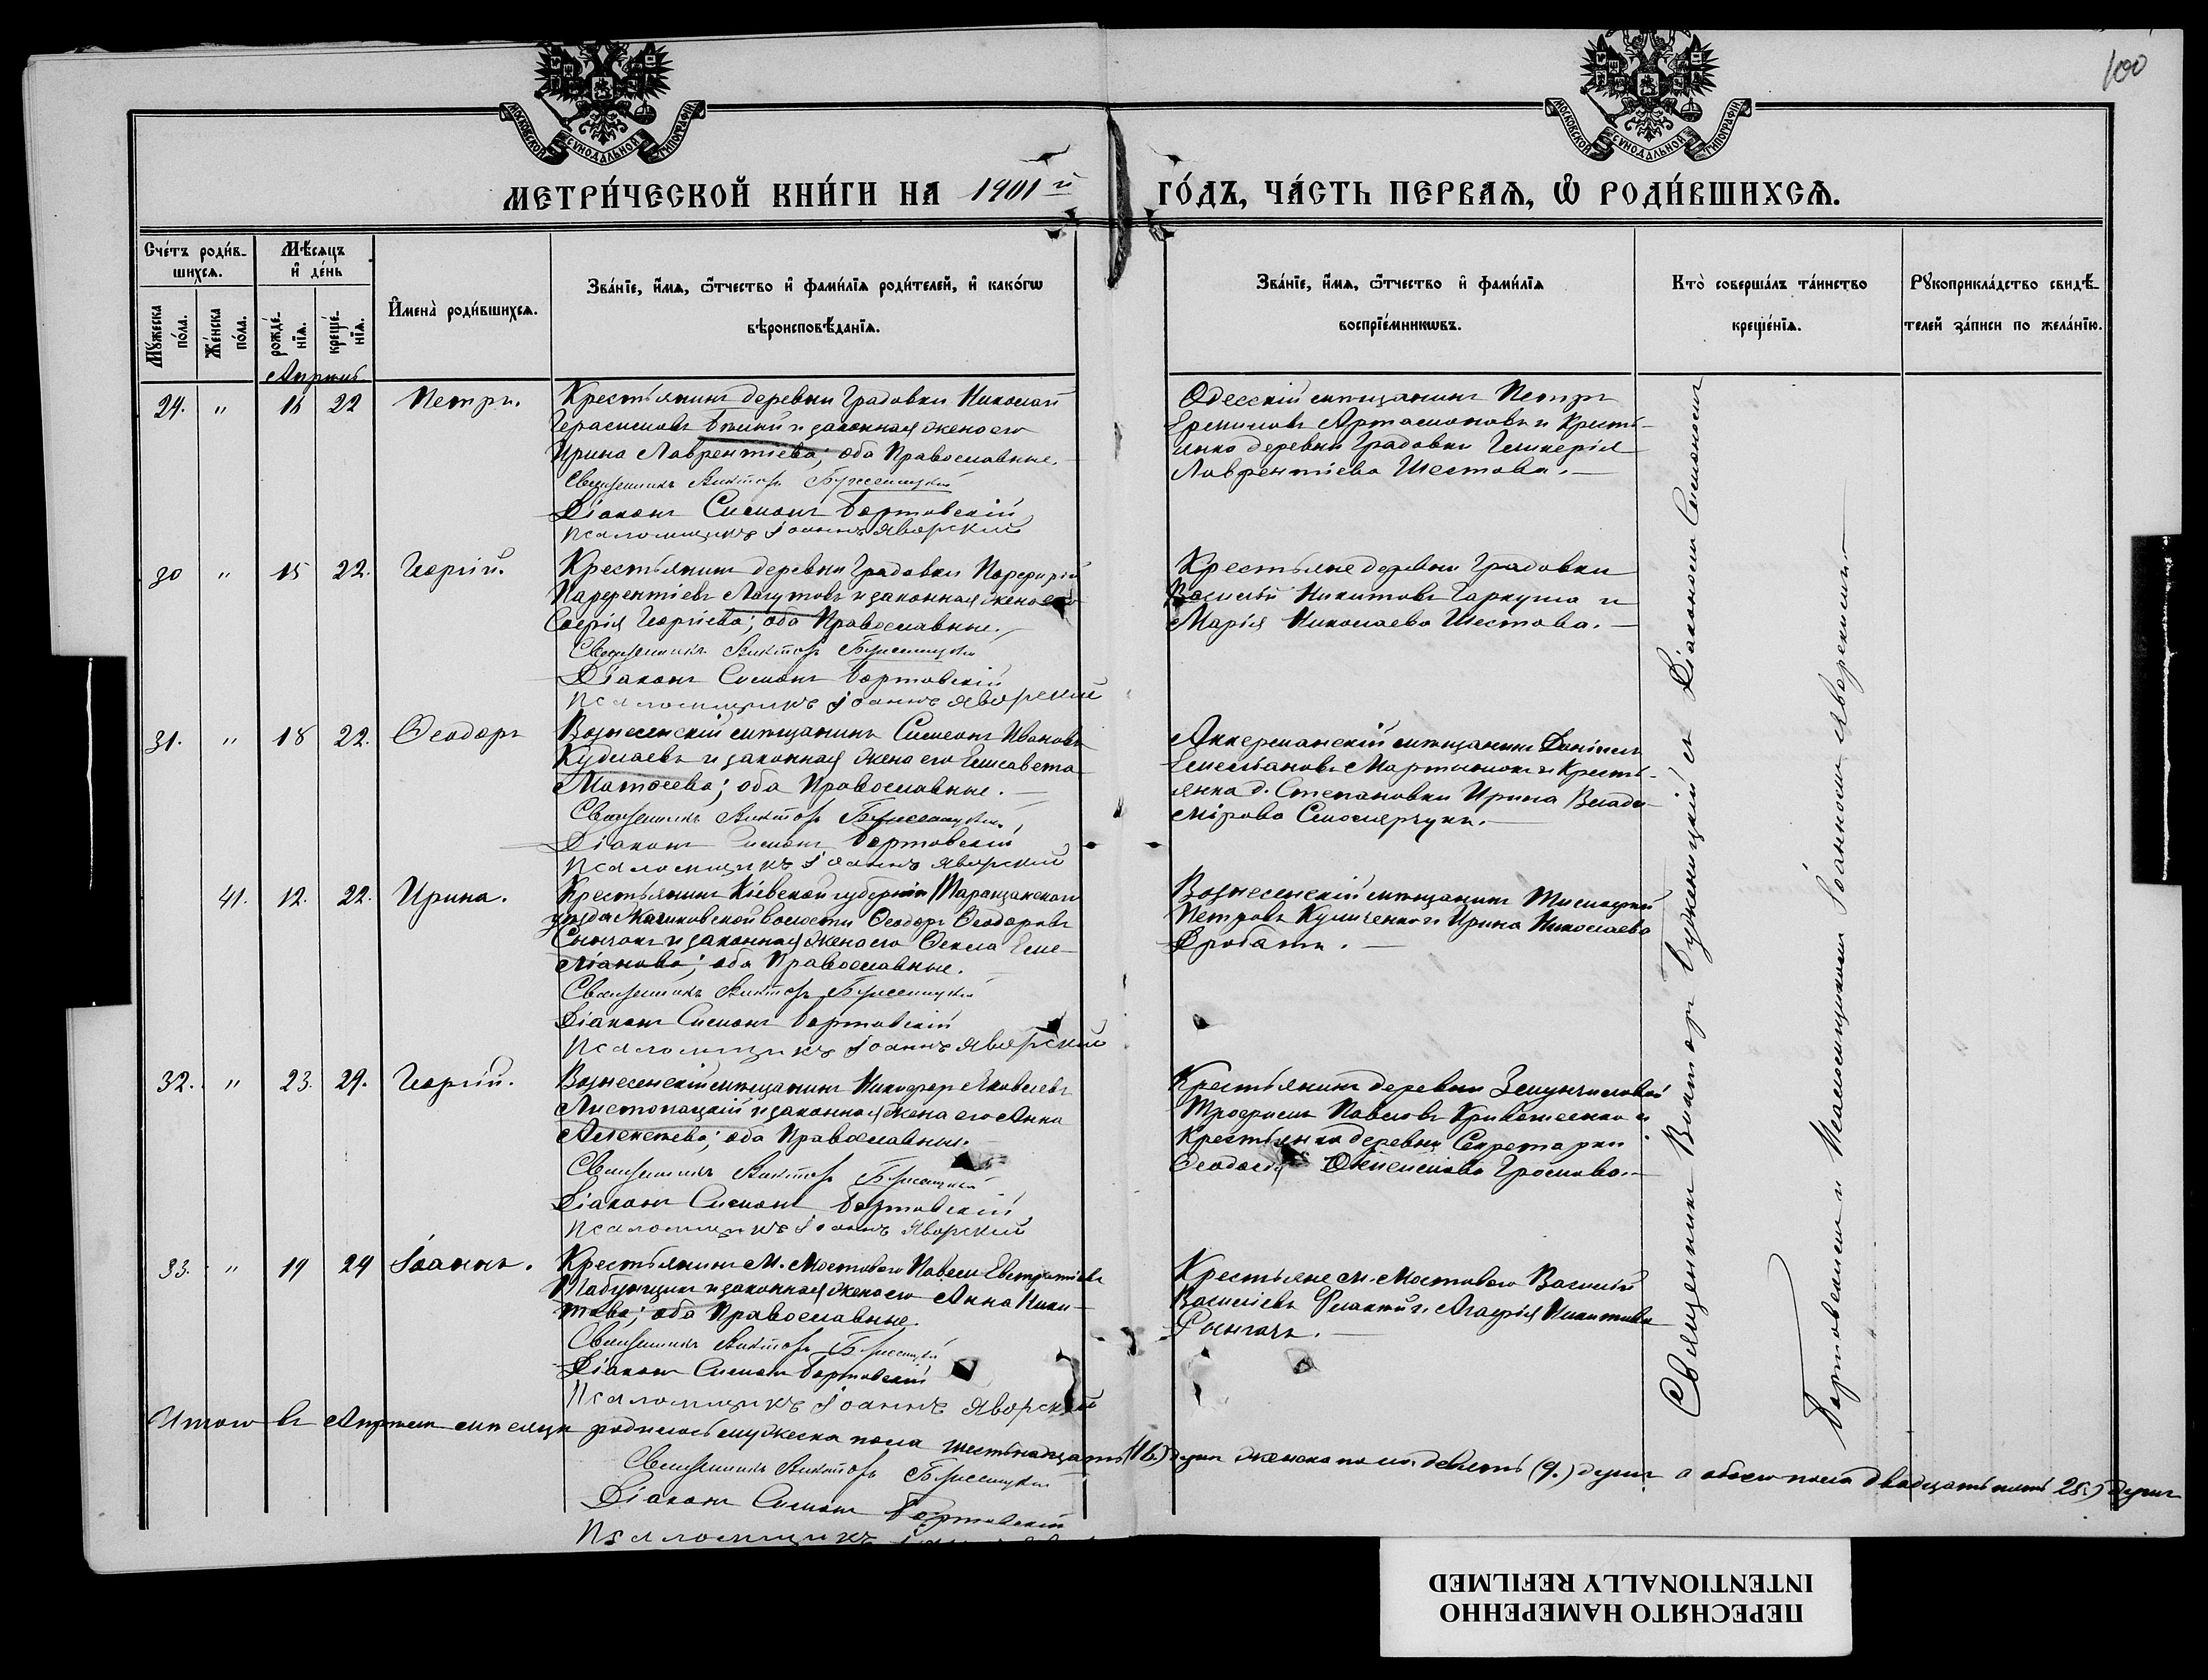 100
МОСКОВСКОЙ СѴНОДАЛЬНОЙ ТИПОГРАФІИ
МОСКОВСКОЙ СѴНОДАЛЬНОЙ ТИПОГРАФІИ
МЕТРИ́ЧЕСКОЙ КНИ́ГИ НА 1901й ГО́ДЪ, ЧА́СТЬ ПЕРВАѦ, Ѡ҆ РОДИ́ВШИХСѦ.
Сче́тъ роди́в-
шихсѧ.
Мꙋжеска по́ла.
Же́нска по́ла.
Мѣсѧцъ
и҆ де́нь
рожде́-
нїѧ.
креще́-
нїѧ.
И҆мена̀ роди́вшихсѧ.
Зва́нїе, и҆́мѧ, ѻ҆́тчество и҆ фами́лїѧ роди́телей, и҆ како́гѡ
вѣроисповѣ́данїѧ.
Зва́нїе, и҆́мѧ, ѻ҆́тчество и҆ фами́лїѧ
воспрїе́мникѡвъ.
Кто̀ соверша́лъ та́инство
креще́нїѧ.
Рꙋкоприкла́дство свидѣ́-
телей за́писи по жела́нїю.
Апрѣль
29. " 16 22 Петръ.
Крестьянинъ деревни Градовки Николай
Герасимовъ и законная жена его
Ирина Лаврентіева; оба Православные.
Священникъ Викторъ Бужениц­кій
Діаконъ Симонъ Бортовскій
Псаломщикъ Іоаннъ Яворскій
Одесскій мѣщанинъ Петръ
Артамоновъ и Кресть-
янка деревни Градовки Гликерія
Лаврентіева Шестова.
30 " 15 22. Георгій.
Крестьянинъ деревни Градовки Порфирій
Парфентіевъ Лагутовъ и законная жена его
Софія Георгіева; оба Православные.
Священникъ Викторъ Буженицкій
Діаконъ Симонъ Бортовскій
Псаломщикъ Іоаннъ Яворскій
Крестьяне деревни Градовки
Василій Никитовъ Гаркуша и
Марія Николаева Шестова.
31. " 18 22. Ѳеодоръ
Вознесенскій мѣщанинъ Симеонъ Ивановъ
и законная жена его Елисавета
Матѳеева; оба Православные.
Священникъ Викторъ Буженицкій
Діаконъ Симонъ Бортовскій
Псаломщикъ Іоаннъ Яворскій
Аккерманскій мѣщанинъ Даніилъ
Емельяновъ Мартынюкъ и Кресть-
янка д. Степановки Ирина Влади-
мірова
41. 12. 22. Ирина.
Крестьянинъ Кіевской губерніи Таращанскаго
уѣзда волости Ѳеодоръ Ѳеодоровъ
и законная жена его Ѳекла Еме-
ліанова; оба Православные.
Священникъ Викторъ Буженицкій
Діаконъ Симонъ Бортовскій
Псаломщикъ Іоаннъ Яворскій
Вознесенскій мѣщанинъ Тимоѳей
Петровъ Куличенко и Ирина Николаева
32. " 23. 29. Георгій.
Вознесенскій мѣщанинъ Никифоръ Яковлевъ
Листопацкій и законная жена его Анна
Алексѣева; оба Православные.
Священникъ Викторъ Буженицкій
Діаконъ Симонъ Бортовскій
Псаломщикъ Іоаннъ Яворскій
Крестьянинъ деревни
Трофимъ Павловъ и
Крестьянка деревни Секретарки
Ѳеодосія Громова.
33. " 19 29 Іоаннъ.
Крестьянинъ м. Мостового Павелъ Евстратіевъ
Табунщикъ и законная жена его Анна Ники-
това; оба Православные.
Священникъ Викторъ Буженицкій
Діаконъ Симонъ Бортовскій
Псаломщикъ Іоаннъ Яворскій
Крестьяне м. Мостового Василій
Василіевъ и Агафія Никитова
Священникъ Викторъ Буженицкій съ Діакономъ Симономъ
Бортовскимъ и Псаломщикомъ Іоанномъ Яворскимъ.
Итого въ Апрѣлѣ мѣсяцѣ родилось мужеска пола шестьнадцать (16.) душъ женска пола девять (9.) душъ а обоего пола двадцать пять 25.) душъ
Священникъ Викторъ Буженицкій
Діаконъ Симонъ Бортовскій
Псаломщикъ
ПЕРЕСНЯТО НАМЕРЕННО
INTENTIONALLY REFILMED